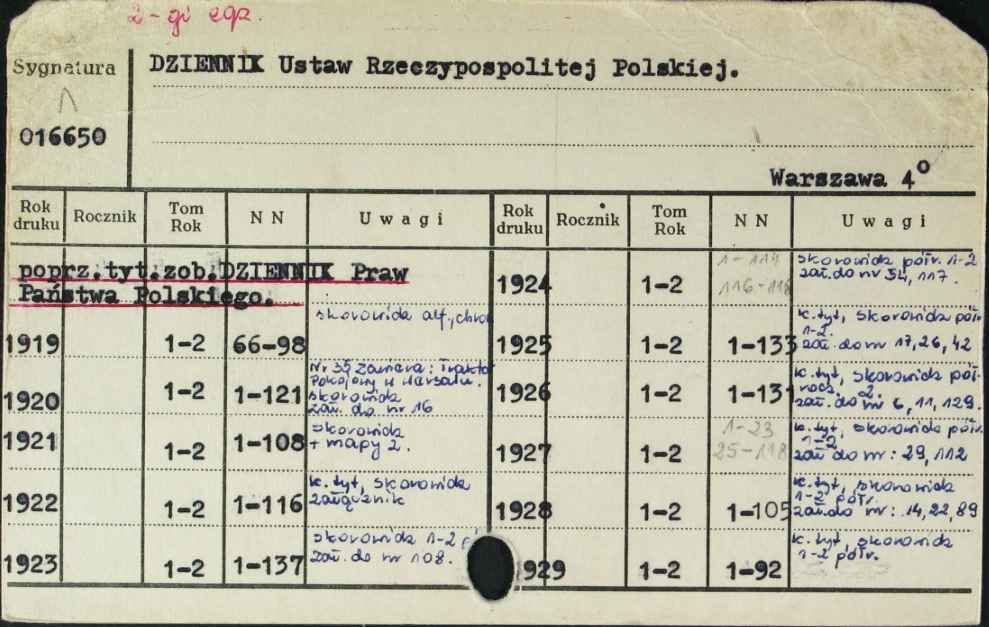 2-gi egz.
Sygnatura
016650
DZIENNIK Ustaw Rzeczypospolitej Polskiej.
Warszawa 4°
Rok druku Rocznik Tom Rok NN Uwagi Rok druku Rocznik Tom Rok NN Uwagi
poprz.tyt.zob.DZIENNIK Praw
Państwa Polskiego.
1919 1-2 66-98 skorowidz alf., chron
1920 1-2 1-121 Nr 35 zawiera: Traktat
Pokojowy w Wersalu.
skorowidz
zał. do nr 16
1921 1-2 1-108 skorowidz
+ mapy 2.
1922 1-2 1-116 k. tyt, skorowidz
załącznik
1923 1-2 1-137 skorowidz 1-2
zał. do nr 108.
1924 1-2 1-114
116-118 skorowidz półr. 1-2
zał. do nr 54, 117.
1925 1-2 1-133 k. tyt, skorowidz półr
1-2.
zał. do nr 17, 26, 42
1926 1-2 1-131 k. tyt, skorowidz pół-
rocz. 2.
zał. do nr 6, 11, 129.
1927 1-2 1-23
25-118 k. tyt, skorowidz półr.
1-2
zał do nr: 29, 112
1928 1-2 1-105 k. tyt, skorowidz
1-2 półr.
zał. do nr: 14, 22, 89
1929 1-2 1-92 k. tyt, skorowidz
1-2 półr.